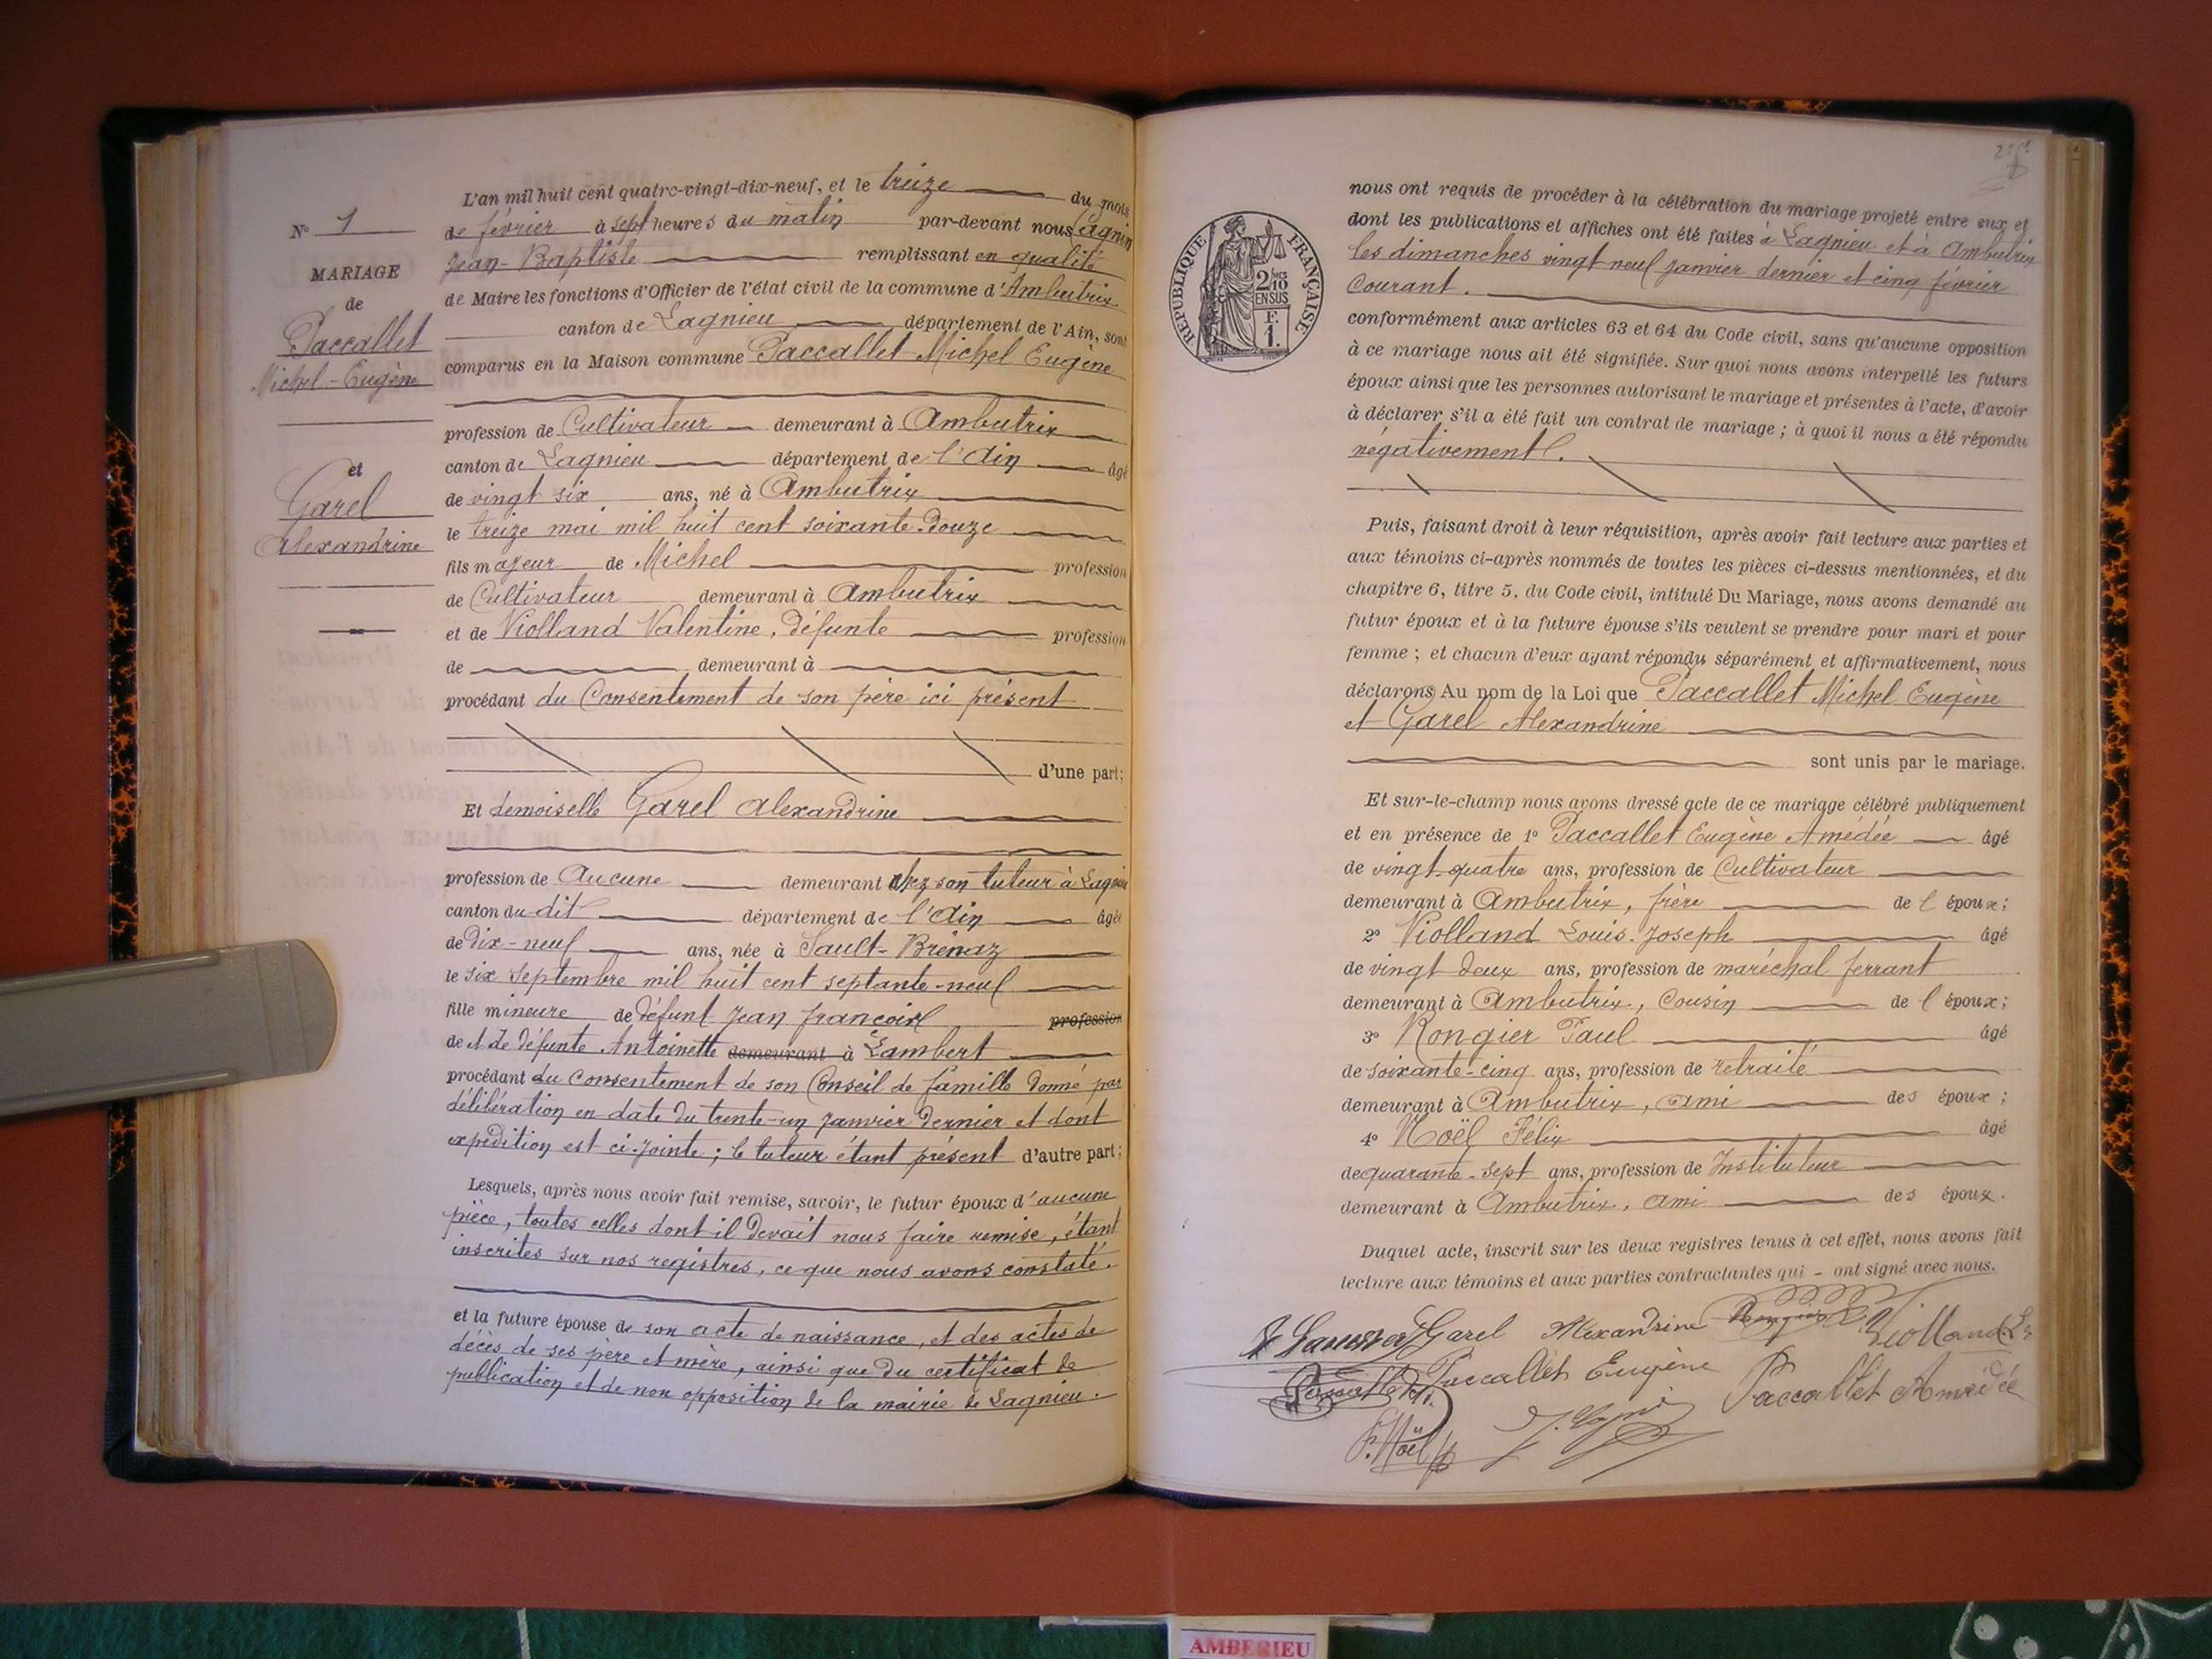 N° 1
MARIAGE
de
Paccallet
Michel-Eugène
et
Garel
Alexandrine
L'an mil huit cent quatre-vingt-dix-neuf, et le treize du mois
de février à sept heures du matin par-devant nous Cagnin
Jean-Baptiste remplissant en qualité
de Maire les fonctions d'Officier de l'état civil de la commune d'Ambutrix
canton de Lagnieu département de l'Ain, sont
comparus en la Maison commune Paccallet Michel Eugène
profession de Cultivateur demeurant à Ambutrix
canton de Lagnieu département de l'Ain âgé
de vingt six ans, né à Ambutrix
le treize mai mil huit cent soixante-douze
fils majeur de Michel profession
de Cultivateur demeurant à Ambutrix
et de Violland Valentine, défunte profession
de demeurant à
procédant du Consentement de son père ici présent
d'une part;
Et demoiselle Garel Alexandrine
profession de Aucune demeurant chez son tuteur à Lagnieu
canton du dit département de l'Ain âgée
de dix-neuf ans, née à Sault-Brénaz
le six Septembre mil huit cent septante-neuf
fille mineure de défunt Jean François profession
de et de défunte Antoinette demeurant à Lambert
procédant du Consentement de son Conseil de famille donné par
délibération en date du trente-un Janvier dernier et dont
expédition est ci-jointe; le tuteur étant présent d'autre part;
Lesquels, après nous avoir fait remise, savoir, le futur époux d'aucune
pièce, toutes celles dont il devait nous faire remise, étant
inscrites sur nos registres, ce que nous avons constaté.
et la future épouse de son acte de naissance, et des actes de
décès de ses père et mère, ainsi que du certificat de
publication et de non opposition de la mairie de Lagnieu.
RÉPUBLIQUE FRANÇAISE
2/10
EN SUS
F.
1.
nous ont requis de procéder à la célébration du mariage projeté entre eux et
dont les publications et affiches ont été faites à Lagnieu et à Ambutrix
les dimanches vingt neuf Janvier dernier et cinq février
Courant.
conformément aux articles 63 et 64 du Code civil, sans qu'aucune opposition
à ce mariage nous ait été signifiée. Sur quoi nous avons interpellé les futurs
époux ainsi que les personnes autorisant le mariage et présentes à l'acte, d'avoir
à déclarer s'il a été fait un contrat de mariage; à quoi il nous a été répondu
négativement.
Puis, faisant droit à leur réquisition, après avoir fait lecture aux parties et
aux témoins ci-après nommés de toutes les pièces ci-dessus mentionnées, et du
chapitre 6, titre 5, du Code civil, intitulé Du Mariage, nous avons demandé au
futur époux et à la future épouse s'ils veulent se prendre pour mari et pour
femme; et chacun d'eux ayant répondu séparément et affirmativement, nous
déclarons Au nom de la Loi que Paccallet Michel Eugène
et Garel Alexandrine
sont unis par le mariage.
Et sur-le-champ nous avons dressé acte de ce mariage célébré publiquement
et en présence de 1° Paccallet Eugène Amédée âgé
de vingt-quatre ans, profession de Cultivateur
demeurant à Ambutrix, frère de l époux;
2° Violland Louis-Joseph âgé
de vingt deux ans, profession de maréchal ferrant
demeurant à Ambutrix, Cousin de l époux;
3° Rongier Paul âgé
de soixante-cinq ans, profession de retraité
demeurant à Ambutrix, ami des époux;
4° Noël Félix âgé
de quarante-sept ans, profession de Instituteur
demeurant à Ambutrix, ami des époux.
Duquel acte, inscrit sur les deux registres tenus à cet effet, nous avons fait
lecture aux témoins et aux parties contractantes qui - ont signé avec nous.
Garel Alexandrine Rongier Violland Ls
Paccallet Eugène Paccallet Amédée
F. Noël
AMBERIEU